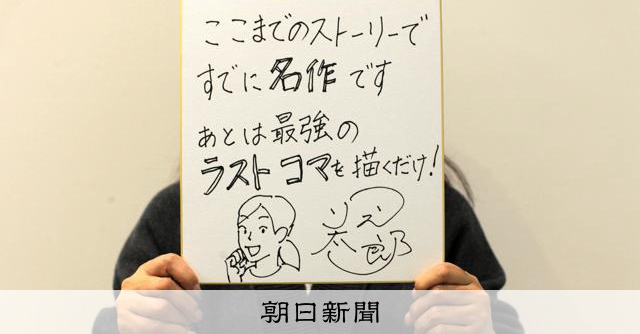 ここまでのストーリーで
すでに名作です
あとは最強の
ラストコマを描くだけ!
朝日新聞